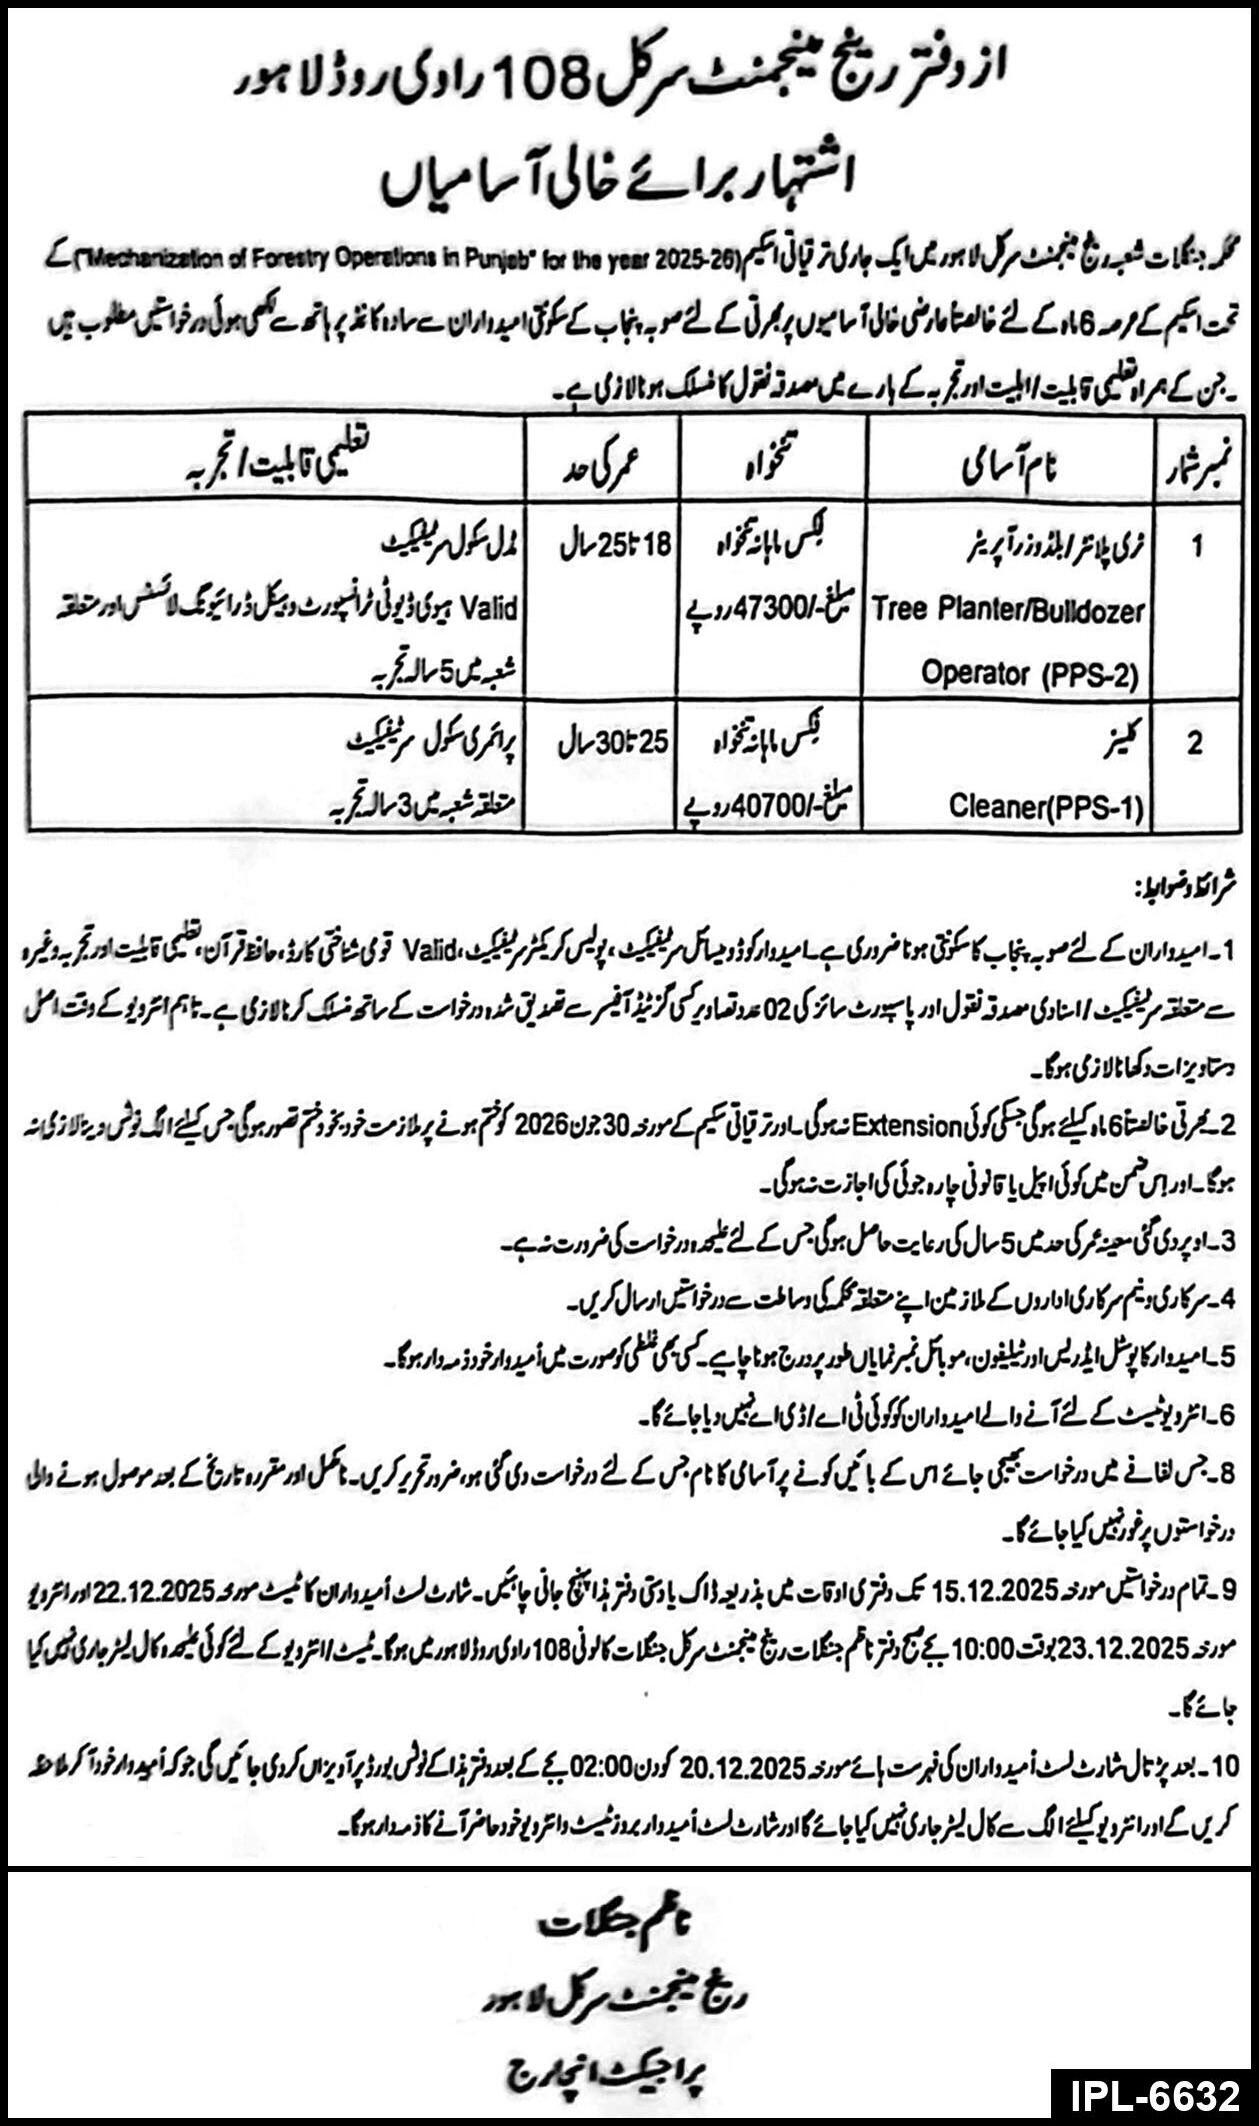 از دفتر رینج مینجمنٹ سرکل 108 راوی روڈ لاہور
اشتہار برائے خالی آسامیاں
محکمہ جنگلات شعبہ رینج مینجمنٹ سرکل لاہور میں ایک جاری ترقیاتی اسکیم ("Mechanization of Forestry Operations in Punjab" for the year 2025-26) کے
تحت اسکیم کے عرصہ 6 ماہ کے لئے خالصتاً عارضی خالی آسامیوں پر بھرتی کے لئے صوبہ پنجاب کے سکونتی امیدواران سے سادہ کاغذ پر ہاتھ سے لکھی ہوئی درخواستیں مطلوب ہیں
۔ جن کے ہمراہ تعلیمی قابلیت/اہلیت اور تجربہ کے بارے میں مصدقہ نقول کا منسلک ہونا لازمی ہے۔
نمبر شمار نام آسامی تنخواہ عمر کی حد تعلیمی قابلیت/تجربہ
1 ٹری پلانٹر/بلڈوزر آپریٹر فکس ماہانہ تنخواہ 18 تا 25 سال مڈل سکول سرٹیفکیٹ
Tree Planter/Bulldozer مبلغ -/47300 روپے Valid ہیوی ڈیوٹی ٹرانسپورٹ وہیکل ڈرائیونگ لائسنس اور متعلقہ
Operator (PPS-2) شعبہ میں 5 سالہ تجربہ
2 کلینر فکس ماہانہ تنخواہ 25 تا 30 سال پرائمری سکول سرٹیفکیٹ
Cleaner(PPS-1) مبلغ -/40700 روپے متعلقہ شعبہ میں 3 سالہ تجربہ
شرائط و ضوابط:
1۔ امیدواران کے لئے صوبہ پنجاب کا سکونتی ہونا ضروری ہے۔ امیدوار کو ڈومیسائل سرٹیفکیٹ، پولیس کریکٹر سرٹیفکیٹ، Valid قومی شناختی کارڈ، حافظ قرآن، تعلیمی قابلیت اور تجربہ وغیرہ
سے متعلقہ سرٹیفکیٹ/اسناد کی مصدقہ نقول اور پاسپورٹ سائز کی 02 عدد تصاویر کسی گزٹیڈ آفیسر سے تصدیق شدہ درخواست کے ساتھ منسلک کرنا لازمی ہے۔ تاہم انٹرویو کے وقت اصل
دستاویزات دکھانا لازمی ہوگا۔
2۔ بھرتی خالصتاً 6 ماہ کیلئے ہوگی جسکی کوئی Extension نہ ہوگی۔ اور ترقیاتی سکیم کے مورخہ 30 جون 2026 کو ختم ہونے پر ملازمت خود بخود ختم تصور ہوگی جس کیلئے الگ نوٹس دینا لازمی نہ
ہوگا۔ اور اس ضمن میں کوئی اپیل یا قانونی چارہ جوئی کی اجازت نہ ہوگی۔
3۔ اوپر دی گئی معینہ عمر کی حد میں 5 سال کی رعایت حاصل ہوگی جس کے لئے علیحدہ درخواست کی ضرورت نہ ہے۔
4۔ سرکاری و نیم سرکاری اداروں کے ملازمین اپنے متعلقہ محکمہ کی وساطت سے درخواستیں ارسال کریں۔
5۔ امیدوار کا پوسٹل ایڈریس اور ٹیلیفون، موبائل نمبر نمایاں طور پر درج ہونا چاہیے۔ کسی بھی غلطی کو صورت میں اُمیدوار خود ذمہ دار ہوگا۔
6۔ انٹرویو/ٹیسٹ کے لئے آنے والے امیدواران کو کوئی ٹی اے/ڈی اے نہیں دیا جائے گا۔
8۔ جس لفافے میں درخواست بھیجی جائے اس کے بائیں کونے پر آسامی کا نام جس کے لئے درخواست دی گئی ہو، ضرور تحریر کریں۔ نامکمل اور مقررہ تاریخ کے بعد موصول ہونے والی
درخواستوں پر غور نہیں کیا جائے گا۔
9۔ تمام درخواستیں مورخہ 15.12.2025 تک دفتری اوقات میں بذریعہ ڈاک یا دستی دفتر ہذا پہنچ جانی چاہئیں۔ شارٹ لسٹ اُمیدواران کا ٹیسٹ مورخہ 22.12.2025 اور انٹرویو
مورخہ 23.12.2025 بوقت 10:00 بجے صبح دفتر ناظم جنگلات رینج مینجمنٹ سرکل جنگلات کالونی 108 راوی روڈ لاہور میں ہوگا۔ ٹیسٹ/انٹرویو کے لئے کوئی علیحدہ کال لیٹر جاری نہیں کیا
جائے گا۔
10۔ بعد پڑتال شارٹ لسٹ اُمیدواران کی فہرست ہائے مورخہ 20.12.2025 کو دن 02:00 بجے کے بعد دفتر ہذا کے نوٹس بورڈ پر آویزاں کر دی جائیں گی جو کہ اُمیدوار خود آ کر ملاحظہ
کریں گے اور انٹرویو کیلئے الگ سے کال لیٹر جاری نہیں کیا جائے گا اور شارٹ لسٹ اُمیدوار بروز ٹیسٹ و انٹرویو خود حاضر آنے کا ذمہ دار ہوگا۔
ناظم جنگلات
رینج مینجمنٹ سرکل لاہور
پراجیکٹ انچارج
IPL-6632